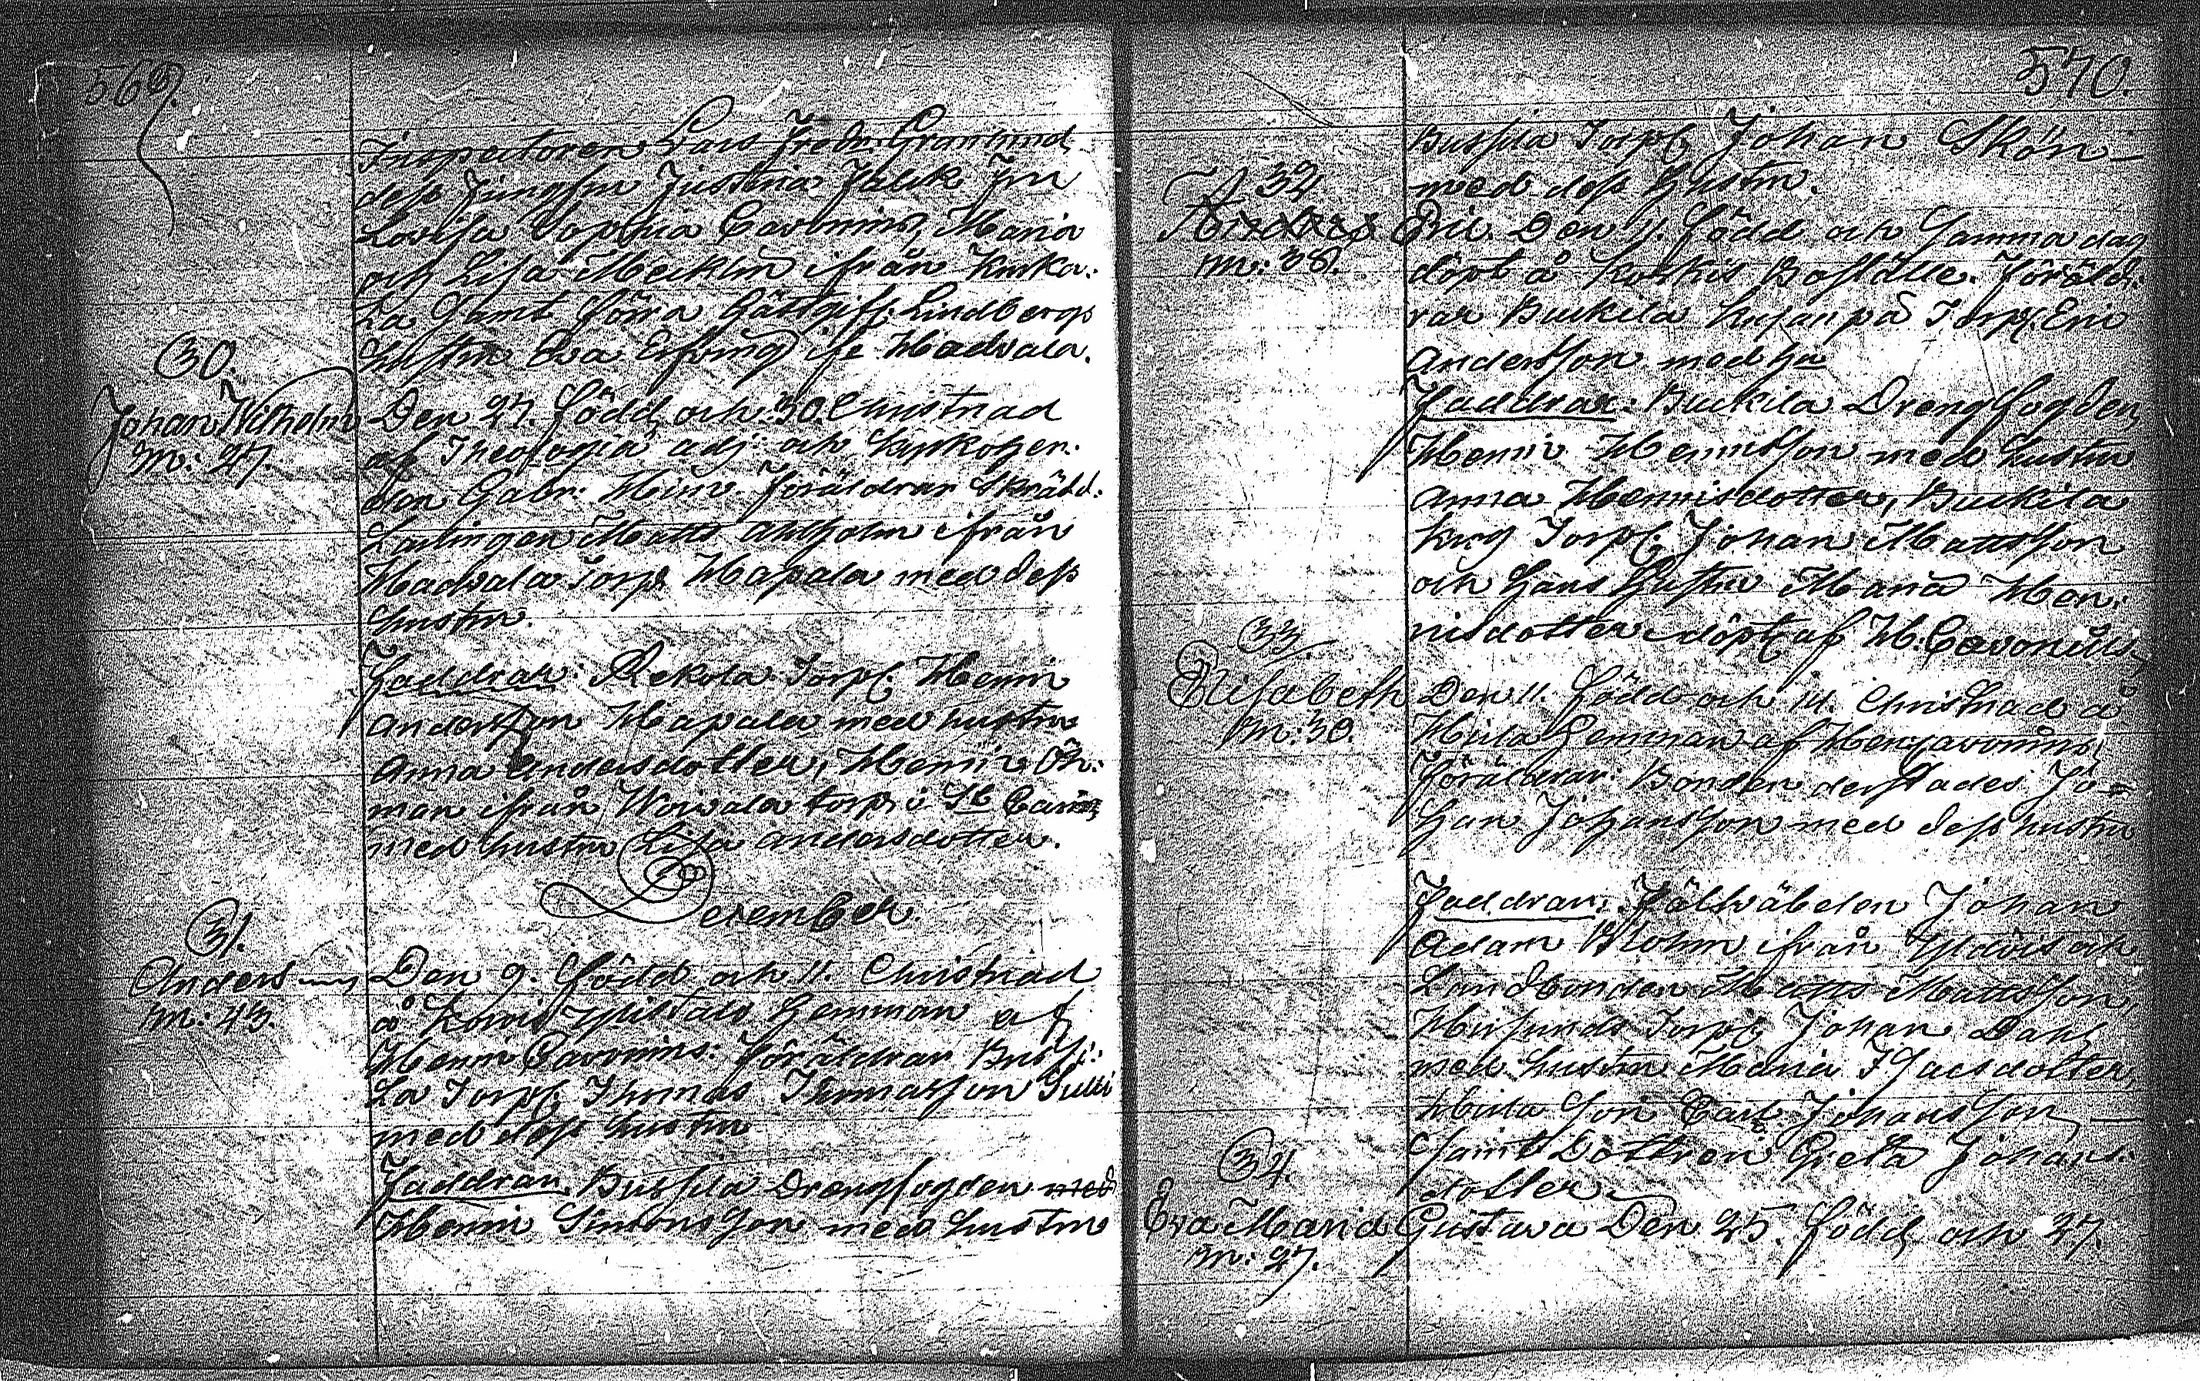 569.
Inspectoren Lars Fredr. Granlund
dess Jungfru Justina Falck Fru
Lovisa Sophia Cavonius, Maria
och Lisa Mecklin ifrån
La samt förra Gästgiff. Lindbergs
hustru Eva ifr. Hadvala.
30.
Johan Wilhelm
M: 27.
Den 27. född och 30. Christnad
af Theologia adj: och
den Gabr. Föräldrar Skrädd.
Lärlingen Matts Ahlholm ifrån
Hadvala Torp Hapala med dess
hustru.
Faddrar: Rekola Torp. Henric
Andersson Hapala med hustru
Anna Andersdotter, Henric Öh:
man ifrån torp i St Carins
med hustru Lisa Andersdotter.
December
31.
Anders
M: 43.
Den 9. född och 11. Christnad
å hemman af
Henric Cavonius: Föräldrar Bussi:
La Torp. Thomas Thomasson
med dess hustru
Faddrar. Bussila Drengfogden med
Henric Simonsson med hustru
570.
Bussila Torp. Johan Skön
med dess hustru.
32
M: 38.
Eric Den 11. född och samma dag
döpt å Boställe. Föräld:
rar Buckila på Torp. Eric
Andersson med h:a
Faddrar: Buckila Drengfogden
Henric Hennisson med hustru
Anna Hennisdotter, Buckila
Krog Torp. Johan Mattsson
och hans hustru Maria Hen:
nisdotter döpt af H. Cavonius
33.
Elisabeth
M: 30.
Den 11. född och 14. Christnad å
Heman af Hen. Cavonius,
Föräldrar: Bonden derstades Jo=
han Johansson med dess hustru
Faddrar: Fältväbelen Johan
Adam Blohm ifrån och
Landbonden Matts Mattsson,
Torp. Johan Dahl
med hustru Maria Isacsdotter,
son Carl Johansson
samt Dottren Greta Johans:
dotter.
34.
Eva Maria
M: 27.
Gustava Den 25. född och 27.